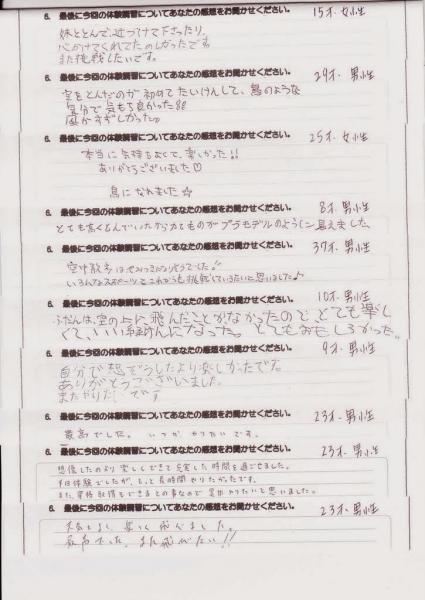 6. 最後に今回の体験講習についてあなたの感想をお聞かせください。 15才 女性
妹ととんで、近づけて下さったり、
心がけてくれてたのしかったです
また挑戦したいです。
6. 最後に今回の体験講習についてあなたの感想をお聞かせください。 29才・男性
空をとんだのが初めてたいけんして、鳥のような
気分で気もち良かった!!
風がすずしかった。
6. 最後に今回の体験講習についてあなたの感想をお聞かせください。 25才 女性
本当に気持ちよくて、楽しかった!!
ありがとうございました♡
鳥になれました☆
6. 最後に今回の体験講習についてあなたの感想をお聞かせください。 8才 男性
とても高くとんでいたから力ものがプラモデルのように見えました。
6. 最後に今回の体験講習についてあなたの感想をお聞かせください。 37才・男性
空中散歩は
いろんなスポーツ これからも挑戦していきたいと思いました♪
6. 最後に今回の体験講習についてあなたの感想をお聞かせください。 10才・男性
ふだんは、空の上に飛んだことがなかったので、とても楽し
くて、いい経けんになった。とてもおもしろかった。
6. 最後に今回の体験講習についてあなたの感想をお聞かせください。 9才・男性
自分で想ぞうしたより楽しかったです。
ありがとうございました。
またやりたいです
6. 最後に今回の体験講習についてあなたの感想をお聞かせください。 23才・男性
最高でした。いつかやりたいです。
6. 最後に今回の体験講習についてあなたの感想をお聞かせください。 23才・男性
想像したのより楽しくできて充実した時間を過ごせました。
半日体験でしたが、もっと長時間やりたかったです。
また、資格取得もできるとの事なので是非やりたいと思いました。
6. 最後に今回の体験講習についてあなたの感想をお聞かせください。 23才・男性
天気もよく、楽しく飛べました。
最高でした、また飛びたい!!